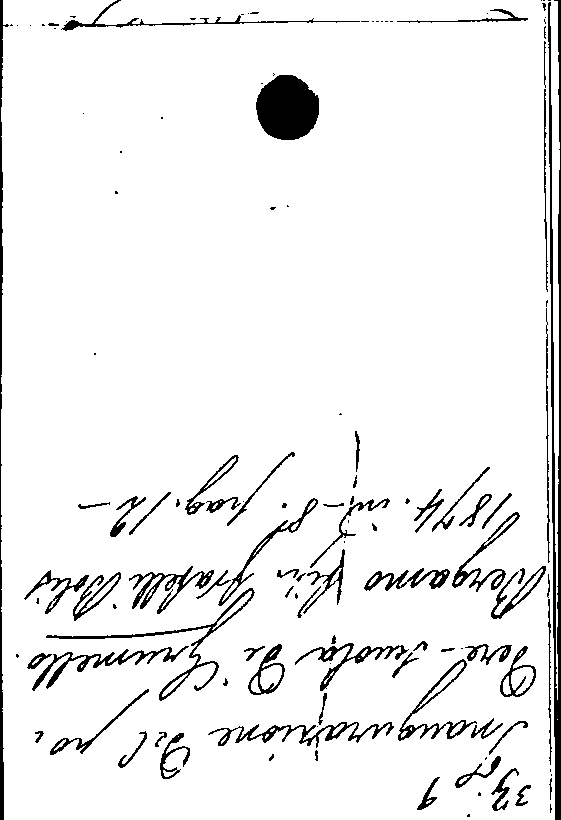 33. 9
Inaugurazione Del po.
Dere-Scuola Di Grumello
Bergamo Fratelli Bolis
1874. in-8° pag. 12 -